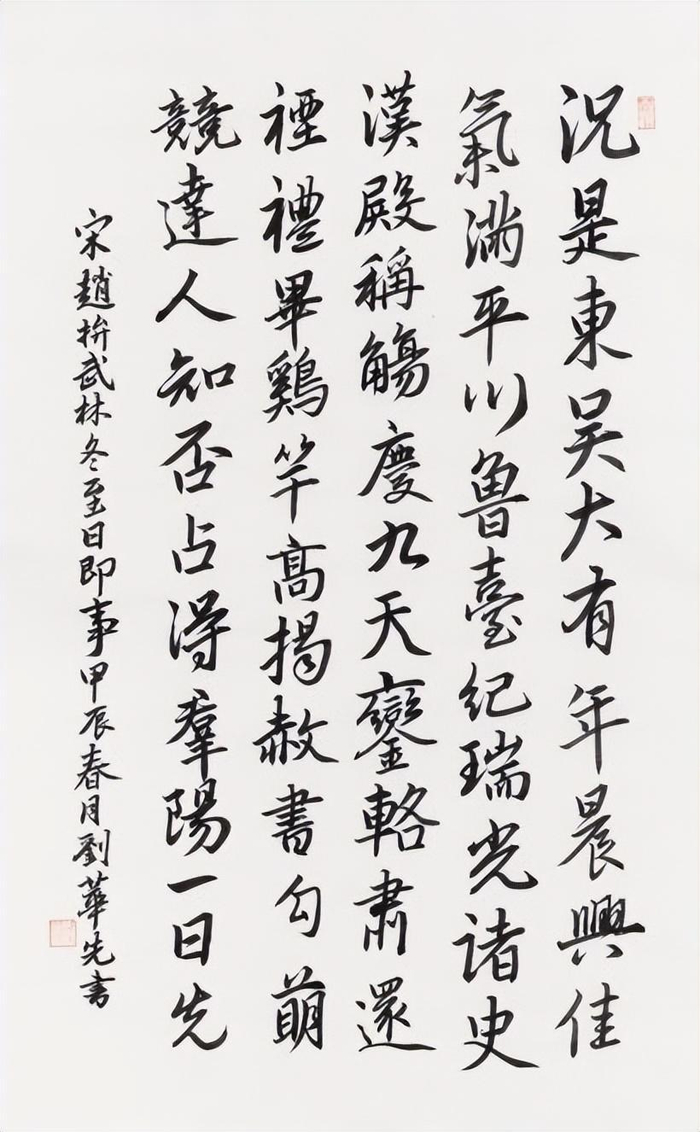 況是東吴大有年晨興佳
氣滿平川魯臺紀瑞光諸史
漢殿稱觴慶九天鑾輅肅還
禋禮畢鷄竿高揭赦書勾萌
競達人知否占得羣陽一日先
宋趙抃武林冬至日即事甲辰春月劉華先書